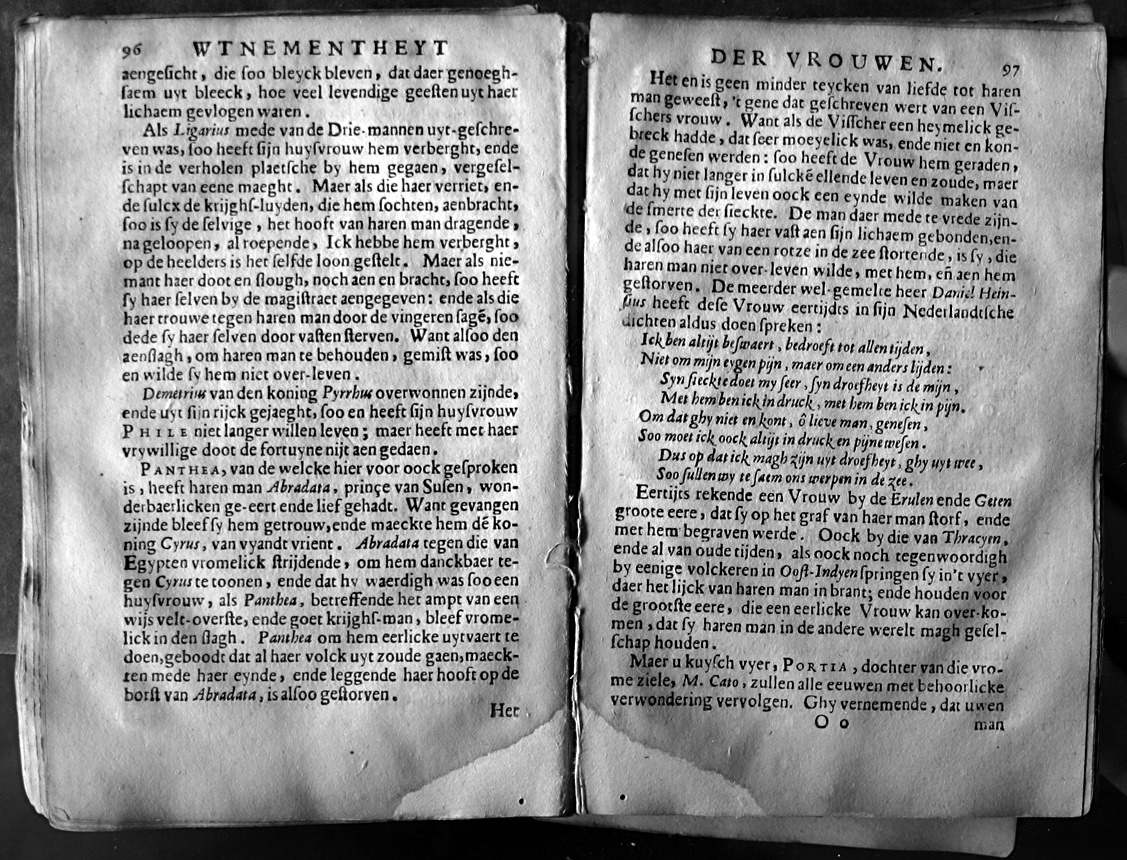 96 WTNEMENTHEYT
aengeſicht, die ſoo bleyck bleven, dat daer genoegh-
ſaem uyt bleeck, hoe veel levendige geeſten uyt haer
lichaem gevlogen waren.
Als Ligarius mede van de Drie-mannen uyt-geſchre-
ven was, ſoo heeft ſijn huyſvrouw hem verberght, ende
is in de verholen plaetſche by hem gegaen, vergeſel-
ſchapt van eene maeght. Maer als die haer verriet, en-
de ſulcx de krijghſ-luyden, die hem ſochten, aenbracht,
ſoo is ſy de ſelvige, het hooft van haren man dragende,
na geloopen, al roepende, Ick hebbe hem verberght,
op de heelders is het ſelfde loon geſtelt. Maer als nie-
mant haer doot en ſlough, noch aen en bracht, ſoo heeft
ſy haer ſelven by de magiſtraet aengegeven: ende als die
haer trouwe tegen haren man door de vingeren ſagē, ſoo
dede ſy haer ſelven door vaſten ſterven. Want alſoo den
aenſlagh, om haren man te behouden, gemiſt was, ſoo
en wilde ſy hem niet over-leven.
Demetrius van den koning Pyrrhus overwonnen zijnde,
ende uyt ſijn rijck gejaeght, ſoo en heeft ſijn huyſvrouw
PHILE niet langer willen leven; maer heeft met haer
vrywillige doot de fortuyne nijt aen gedaen.
PANTHEA, van de welcke hier voor oock geſproken
is, heeft haren man Abradata, prinçe van Suſen, won-
derbaerlicken ge-eert ende lief gehadt. Want gevangen
zijnde bleef ſy hem getrouw, ende maeckte hem dē ko-
ning Cyrus, van vyandt vrient. Abradata tegen die van
Egypten vromelick ſtrijdende, om hem danckbaer te-
gen Cyrus te toonen, ende dat hy waerdigh was ſoo een
huyſvrouw, als Panthea, betreffende het ampt van een
wijs velt-overſte, ende goet krijghſ-man, bleef vrome-
lick in den ſlagh. Panthea om hem eerlicke uytvaert te
doen, geboodt dat al haer volck uyt zoude gaen, maeck-
ten mede haer eynde, ende leggende haer hooft op de
borſt van Abradata, is alſoo geſtorven.
Het
DER VROUWEN. 97
Het en is geen minder teycken van liefde tot haren
man geweeſt, 't gene dat geſchreven wert van een Viſ-
ſchers vrouw. Want als de Viſſcher een heymelick ge-
breck hadde, dat ſeer moeyelick was, ende niet en kon-
de geneſen werden: ſoo heeft de Vrouw hem geraden,
dat hy niet langer in ſulckē ellende leven en zoude, maer
dat hy met ſijn leven oock een eynde wilde maken van
de ſmerte der ſieckte. De man daer mede te vrede zijn-
de, ſoo heeft ſy haer vaſt aen ſijn lichaem gebonden, en-
de alſoo haer van een rotze in de zee ſtortende, is ſy, die
haren man niet over-leven wilde, met hem, eñ aen hem
geſtorven. De meerder wel-gemelte heer Daniel Hein-
ſius heeft deſe Vrouw eertijdts in ſijn Nederlandtſche
dichten aldus doen ſpreken:
Ick ben altijt beſwaert, bedroeft tot allen tijden,
Niet om mijn eygen pijn, maer om een anders lijden:
Syn ſieckte doet my ſeer, ſyn droefheyt is de mijn,
Met hem ben ick in druck, met hem ben ick in pijn.
Om dat ghy niet en kont, ô lieve man, geneſen,
Soo moet ick oock altijt in druck en pijne weſen.
Dus op dat ick magh zijn uyt droefheyt, ghy uyt wee,
Soo ſullen wy te ſaem ons werpen in de zee.
Eertijts rekende een Vrouw by de Erulen ende Geten
groote eere, dat ſy op het graf van haer man ſtorf, ende
met hem begraven werde. Oock by die van Thracyen,
ende al van oude tijden, als oock noch tegenwoordigh
by eenige volckeren in Ooſt-Indyen ſpringen ſy in't vyer,
daer het lijck van haren man in brant; ende houden voor
de grootſte eere, die een eerlicke Vrouw kan over-ko-
men, dat ſy haren man in de andere werelt magh geſel-
ſchap houden.
Maer u kuyſch vyer, PORTIA, dochter van die vro-
me ziele, M. Cato, zullen alle eeuwen met behoorlicke
verwondering vervolgen. Ghy vernemende, dat uwen
O o man